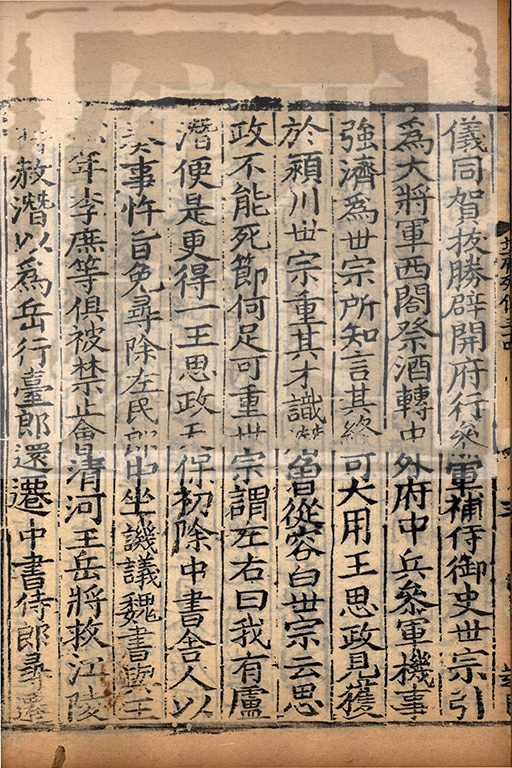 儀同賀拔勝辟開府行叅軍補侍御史世宗引
爲大將軍西閤祭酒轉中外府中兵叅軍機事
強濟爲世宗所知言其終可大用王思政見獲
於潁川世宗重其才識潛曾從容白世宗云思
政不能死節何足可重世宗謂左右曰我有盧
潛便是更得一王思政天保初除中書舍人以
事忤旨免尋除左民郎中坐譏議魏書與王
年李庶等俱被禁止會清河王岳將救江陵
赦潛以爲岳行臺郎還遷中書侍郎尋遷